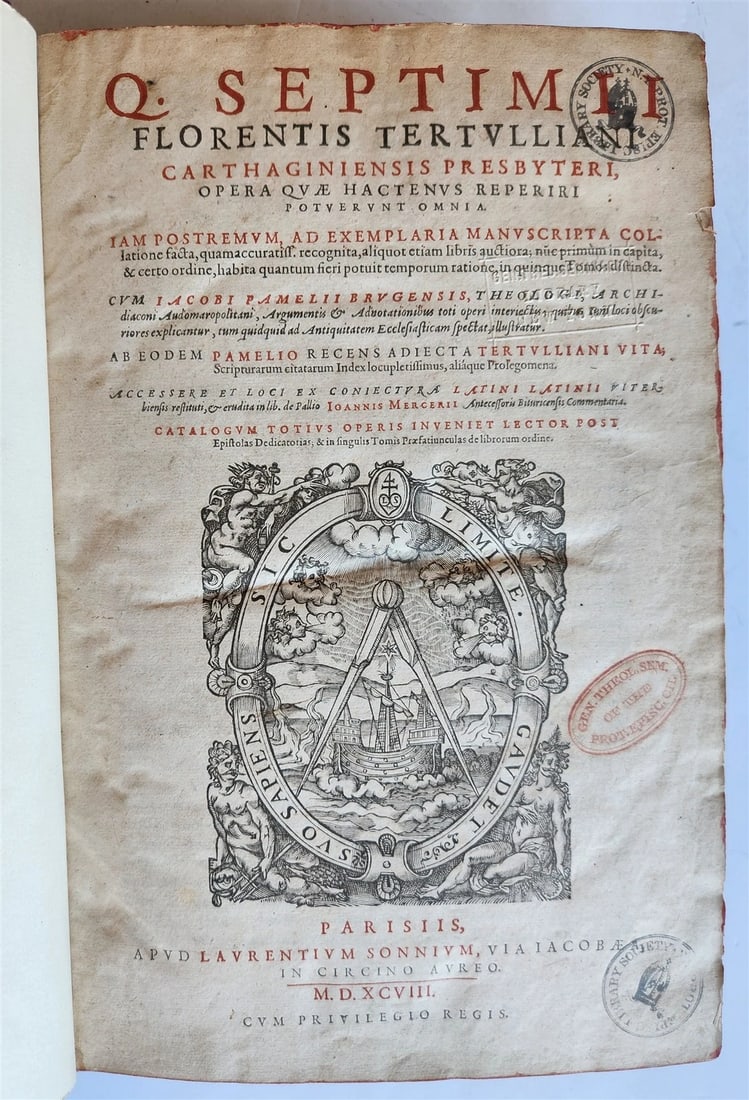 Q. SEPTIMII
FLORENTIS TERTVLLIANI
CARTHAGINIENSIS PRESBYTERI,
OPERA QVÆ HACTENVS REPERIRI
POTVERVNT OMNIA.
IAM POSTREMVM, AD EXEMPLARIA MANVSCRIPTA COL-
latione facta, quam accuratiss. recognita, aliquot etiam libris auctiora; nūc primùm in capita,
& certo ordine, habita quantum fieri potuit temporum ratione, in quinque Tomos distincta.
CVM IACOBI PAMELII BRVGENSIS, THEOLOGI, ARCHI-
diaconi Audomaropolitani, Argumentis & Adnotationibus toti operi interiectis, quibus tum loci obscu-
riores explicantur, tum quidquid ad Antiquitatem Ecclesiasticam spectat, illustratur.
AB EODEM PAMELIO RECENS ADIECTA TERTVLLIANI VITA,
Scripturarum citatarum Index locupletissimus, aliáque Prolegomena.
ACCESSERE ET LOCI EX CONIECTVRA LATINI LATINII VITER-
biensis restituti, & erudita in lib. de Pallio IOANNIS MERCERII Antecessoris Bituricensis Commentaria.
CATALOGVM TOTIVS OPERIS INVENIET LECTOR POST
Epistolas Dedicatorias, & in singulis Tomis Præfatiunculas de librorum ordine.
LS
SIC LIMITE.
SVO SAPIENS GAVDET
GEN. THEOL. SEM.
OF THE
PROT. EPISC. CH.
PARISIIS,
APVD LAVRENTIVM SONNIVM, VIA IACOBÆA
IN CIRCINO AVREO.
M. D. XCVIII.
CVM PRIVILEGIO REGIS.
LIBRARY SOCIETY N.Y. PROT. EPISC.
LIBRARY SOCIETY